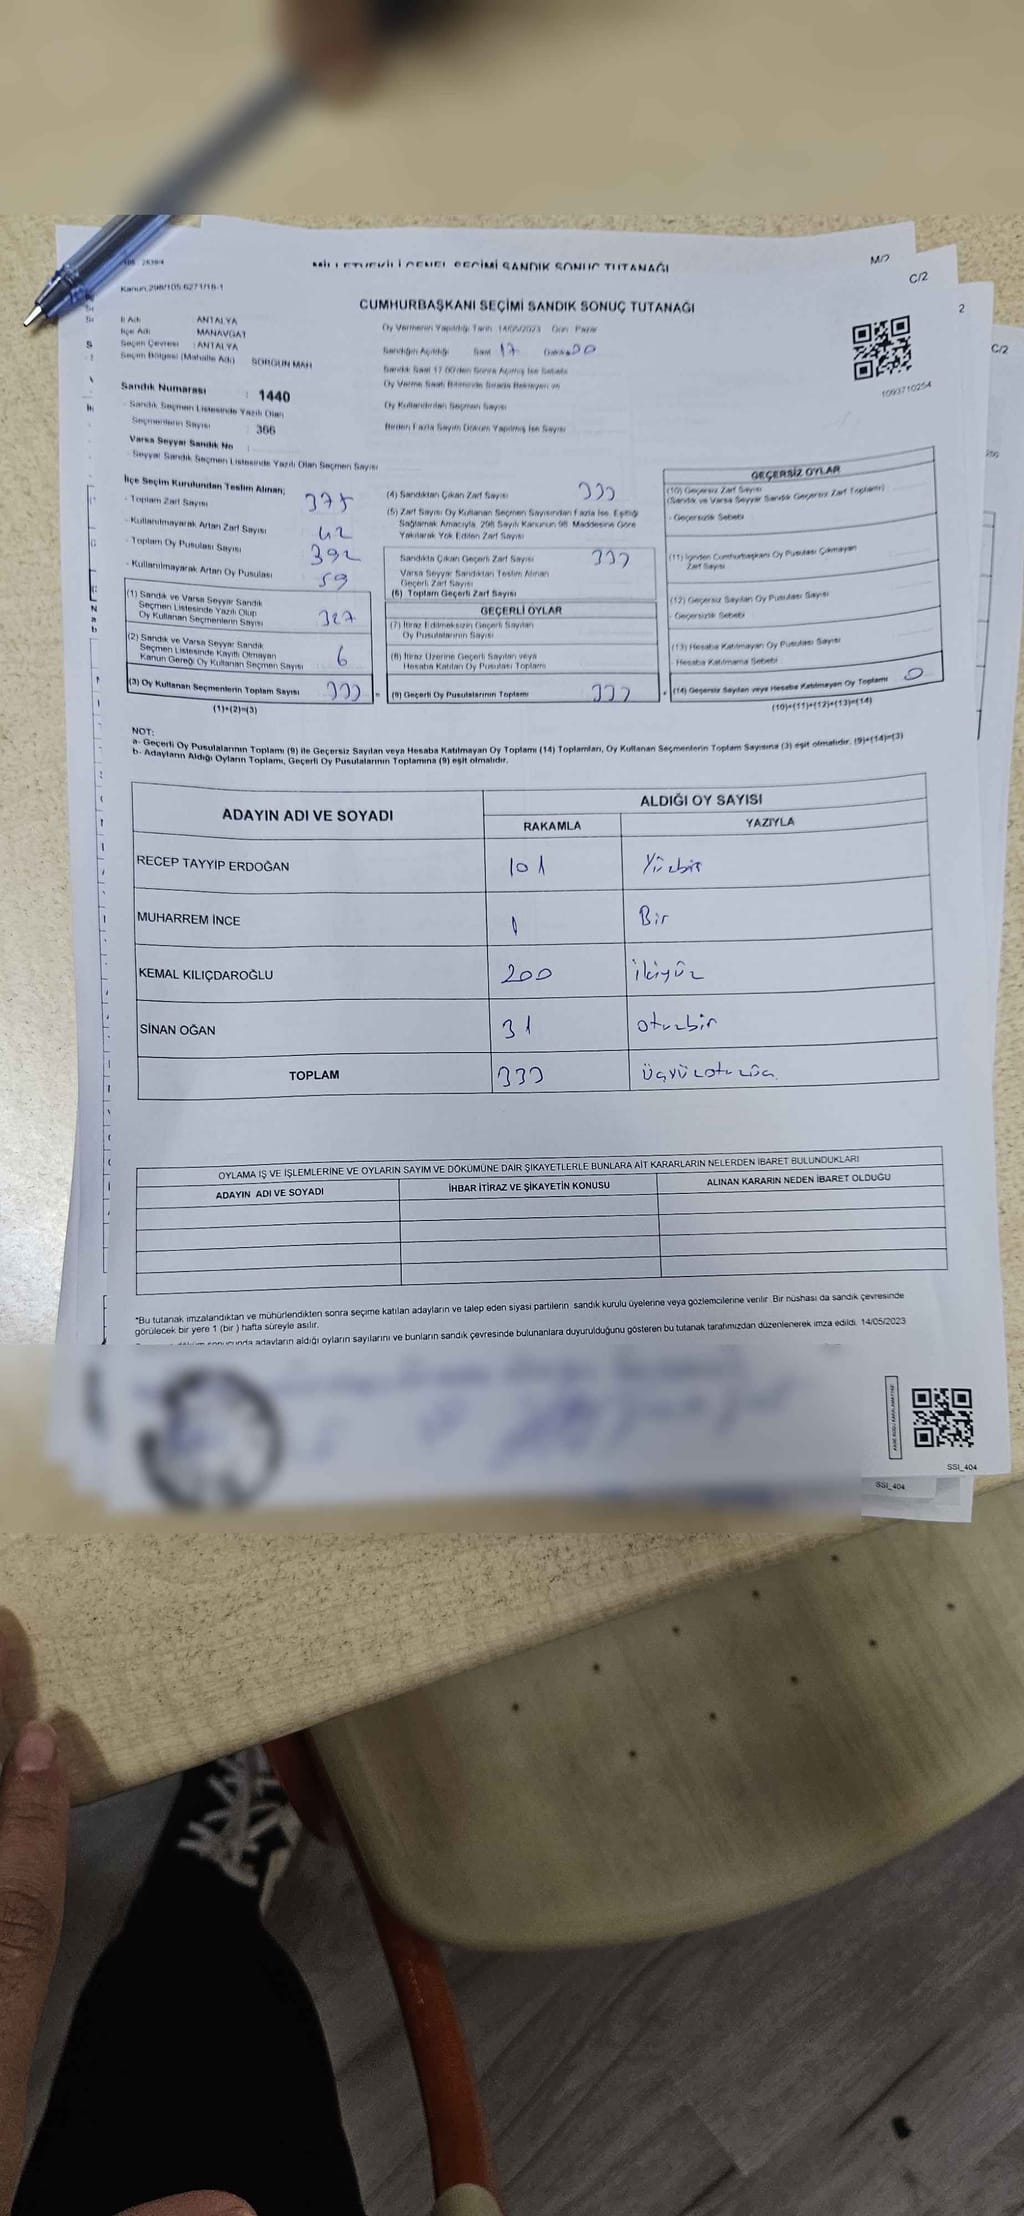 MİLLETVEKİLİ GENEL SEÇİMİ SANDIK SONUÇ TUTANAĞI
M/2
C/2
Kanun,298/105:6271/18-1
CUMHURBAŞKANI SEÇİMİ SANDIK SONUÇ TUTANAĞI
2
C/2
İl Adı ANTALYA
İlçe Adı MANAVGAT
Seçim Çevresi : ANTALYA
Seçim Bölgesi (Mahalle Adı) SORGUN MAH
Sandık Numarası : 1440
- Sandık Seçmen Listesinde Yazılı Olan
Seçmenlerin Sayısı : 366
Varsa Seyyar Sandık No
- Seyyar Sandık Seçmen Listesinde Yazılı Olan Seçmen Sayısı
Oy Vermenin Yapıldığı Tarih 14/05/2023 Gün Pazar
Sandığın Açıldığı Saat 17 Dakika 30
Sandık Saat 17.00'den Sonra Açılmış İse Sebebi
Oy Verme Saati Bitiminde Sırada Bekleyen ve
Oy Kullandırılan Seçmen Sayısı
Birden Fazla Sayım Döküm Yapılmış İse Sayısı
1093710254
İlçe Seçim Kurulundan Teslim Alınan;
- Toplam Zarf Sayısı 375
- Kullanılmayarak Artan Zarf Sayısı 42
- Toplam Oy Pusulası Sayısı 392
- Kullanılmayarak Artan Oy Pusulası 59
(1) Sandık ve Varsa Seyyar Sandık
Seçmen Listesinde Yazılı Olup
Oy Kullanan Seçmenlerin Sayısı 327
(2) Sandık ve Varsa Seyyar Sandık
Seçmen Listesinde Kayıtlı Olmayan
Kanun Gereği Oy Kullanan Seçmen Sayısı 6
(3) Oy Kullanan Seçmenlerin Toplam Sayısı 333 =
(1)+(2)=(3)
(4) Sandıktan Çıkan Zarf Sayısı 333
(5) Zarf Sayısı Oy Kullanan Seçmen Sayısından Fazla İse, Eşitliği
Sağlamak Amacıyla, 298 Sayılı Kanunun 98. Maddesine Göre
Yakılarak Yok Edilen Zarf Sayısı
Sandıkta Çıkan Geçerli Zarf Sayısı 333
Varsa Seyyar Sandıktan Teslim Alınan
Geçerli Zarf Sayısı
(6) Toplam Geçerli Zarf Sayısı
GEÇERLİ OYLAR
(7) İtiraz Edilmeksizin Geçerli Sayılan
Oy Pusulalarının Sayısı
(8) İtiraz Üzerine Geçerli Sayılan veya
Hesaba Katılan Oy Pusulası Toplamı
(9) Geçerli Oy Pusulalarının Toplamı 333 +
GEÇERSİZ OYLAR
(10) Geçersiz Zarf Sayısı
(Sandık ve Varsa Seyyar Sandık Geçersiz Zarf Toplamı)
- Geçersizlik Sebebi
(11) İçinden Cumhurbaşkanı Oy Pusulası Çıkmayan
Zarf Sayısı
(12) Geçersiz Sayılan Oy Pusulası Sayısı
- Geçersizlik Sebebi
(13) Hesaba Katılmayan Oy Pusulası Sayısı
Hesaba Katılmama Sebebi
(14) Geçersiz Sayılan veya Hesaba Katılmayan Oy Toplamı 0
(10)+(11)+(12)+(13)=(14)
NOT:
a- Geçerli Oy Pusulalarının Toplamı (9) ile Geçersiz Sayılan veya Hesaba Katılmayan Oy Toplamı (14) Toplamları, Oy Kullanan Seçmenlerin Toplam Sayısına (3) eşit olmalıdır. (9)+(14)=(3)
b- Adayların Aldığı Oyların Toplamı, Geçerli Oy Pusulalarının Toplamına (9) eşit olmalıdır.
ADAYIN ADI VE SOYADI ALDIĞI OY SAYISI
RAKAMLA YAZIYLA
RECEP TAYYIP ERDOĞAN 101 Yüzbir
MUHARREM İNCE 1 Bir
KEMAL KILIÇDAROĞLU 200 ikiyüz
SİNAN OĞAN 31 otuzbir
TOPLAM 333 üçyüzotuzüç
OYLAMA İŞ VE İŞLEMLERİNE VE OYLARIN SAYIM VE DÖKÜMÜNE DAİR ŞİKAYETLERLE BUNLARA AİT KARARLARIN NELERDEN İBARET BULUNDUKLARI
ADAYIN ADI VE SOYADI İHBAR İTİRAZ VE ŞİKAYETİN KONUSU ALINAN KARARIN NEDEN İBARET OLDUĞU
*Bu tutanak imzalandıktan ve mühürlendikten sonra seçime katılan adayların ve talep eden siyasi partilerin sandık kurulu üyelerine veya gözlemcilerine verilir. Bir nüshası da sandık çevresinde
görülecek bir yere 1 (bir ) hafta süreyle asılır.
sonucunda adayların aldığı oyların sayılarını ve bunların sandık çevresinde bulunanlara duyurulduğunu gösteren bu tutanak tarafımızdan düzenlenerek imza edildi. 14/05/2023
SSI_404
SSI_404